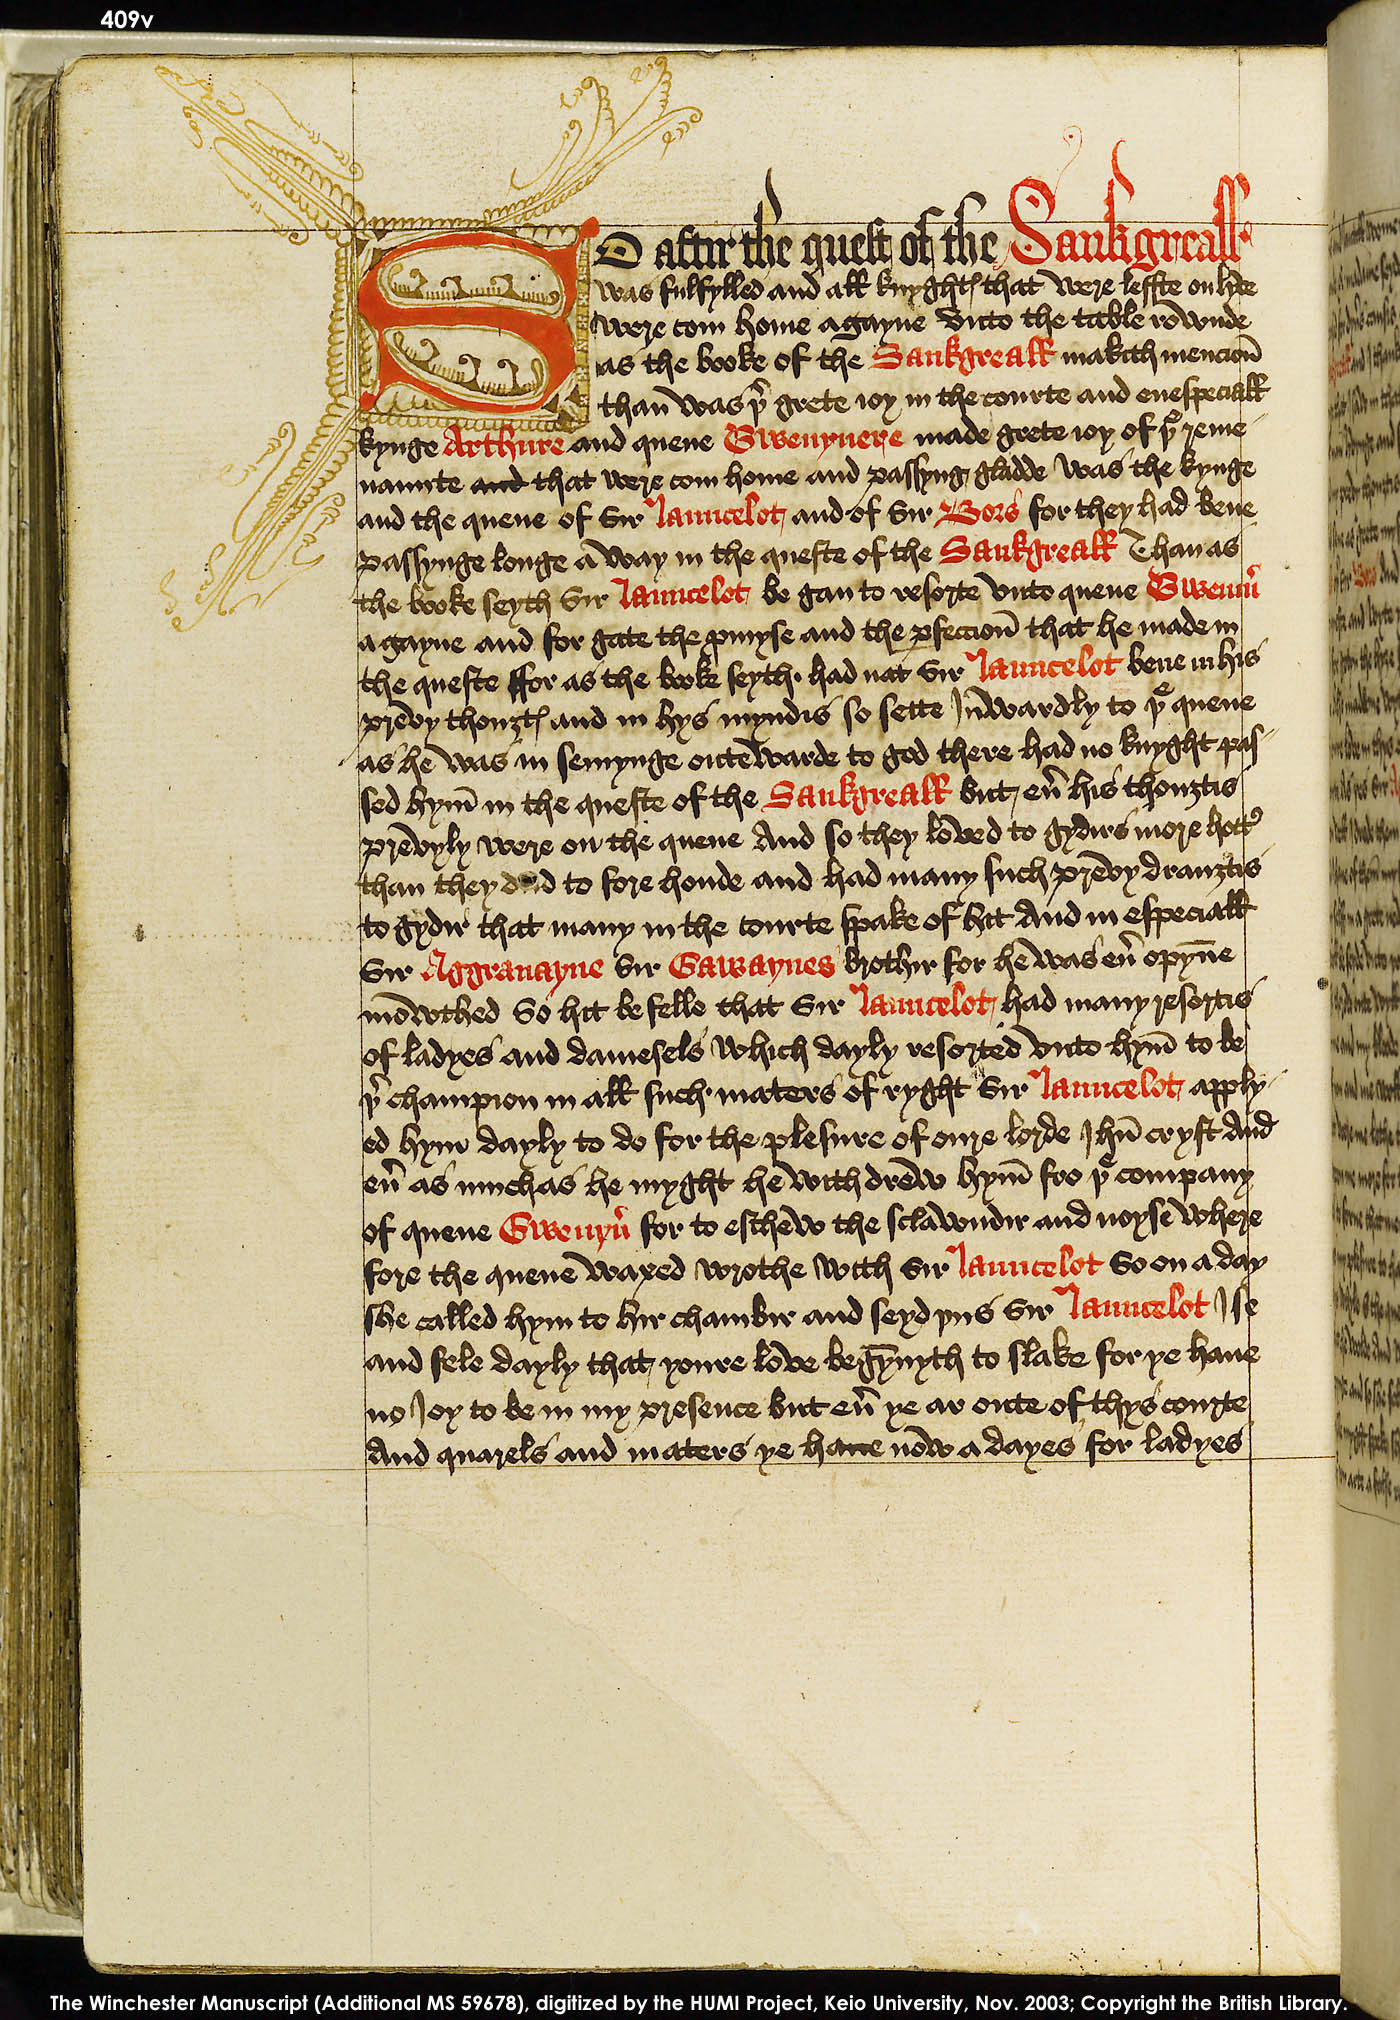 409v
So aftir the quest of the Sankgreall
was fulfylled and all knyghtꝭ that were leffte on lyve
were com home agayne vnto the table rownde
as the booke of the Sankgreall makith mencioū
than was þ̉ grete ioy in the courte and enespeciall
kynge Arthure and quene Gwenyvere made grete ioy of þͤ reme
naunte and that were com home and passyng gladde was the kynge
and the quene of Sir launcelot and of Sir Bors for they had bene
passynge longe a way in the queste of the Sankgreall Than as
the booke seyth Sir launcelot be gan to resorte vnto quene Gwenīū
a gayne and for gate the ꝓmyse and the ꝑfeccioū that he made in
the queste ffor as the booke seyth had nat Sir launcelot bene in his
prevy thouȝtꝭ and in hys myndis so sette Inwardly to þͤ quene
as he was in semynge outewarde to god there had no knyght pas
sed hym̄ in the queste of the Sankgreall but eū his thouȝtis
prevyly were on the quene And so they loved to gydirs more hotꝰ
than they ded to fore honde and had many such prevy drauȝtis
to gydir that many in the courte spake of hit And in especiall
Sir Aggravayne Sir Gawaynes brothir for he was eū opyne
mowthed So hit befelle that Sir launcelot had many resortis
of ladyes and damesels which dayly resorted vnto hym̄ to be
þ̉ champion in all such maters of ryght Sir launcelot apply
ed hym dayly to do for the plesure of oure lorde Ihū cryst And
eū as muche as he myght he withdrew hym̄ fro þͤ company
of quene Gwenyū for to eschew the sclawndir and noyse where
fore the quene waxed wrothe with Sir launcelot So on a day
she called hym to hir chambir and seyd þus Sir launcelot I se
and fele dayly that youre love begȳnyth to slake for ye have
no Ioy to be in my presence but eū ye ar oute of thys courte
And quarels and maters ye have now a dayes for ladyes
The Winchester Manuscript (Additional MS 59678), digitized by the HUMI Project, Keio University, Nov. 2003; Copyright the British Library.